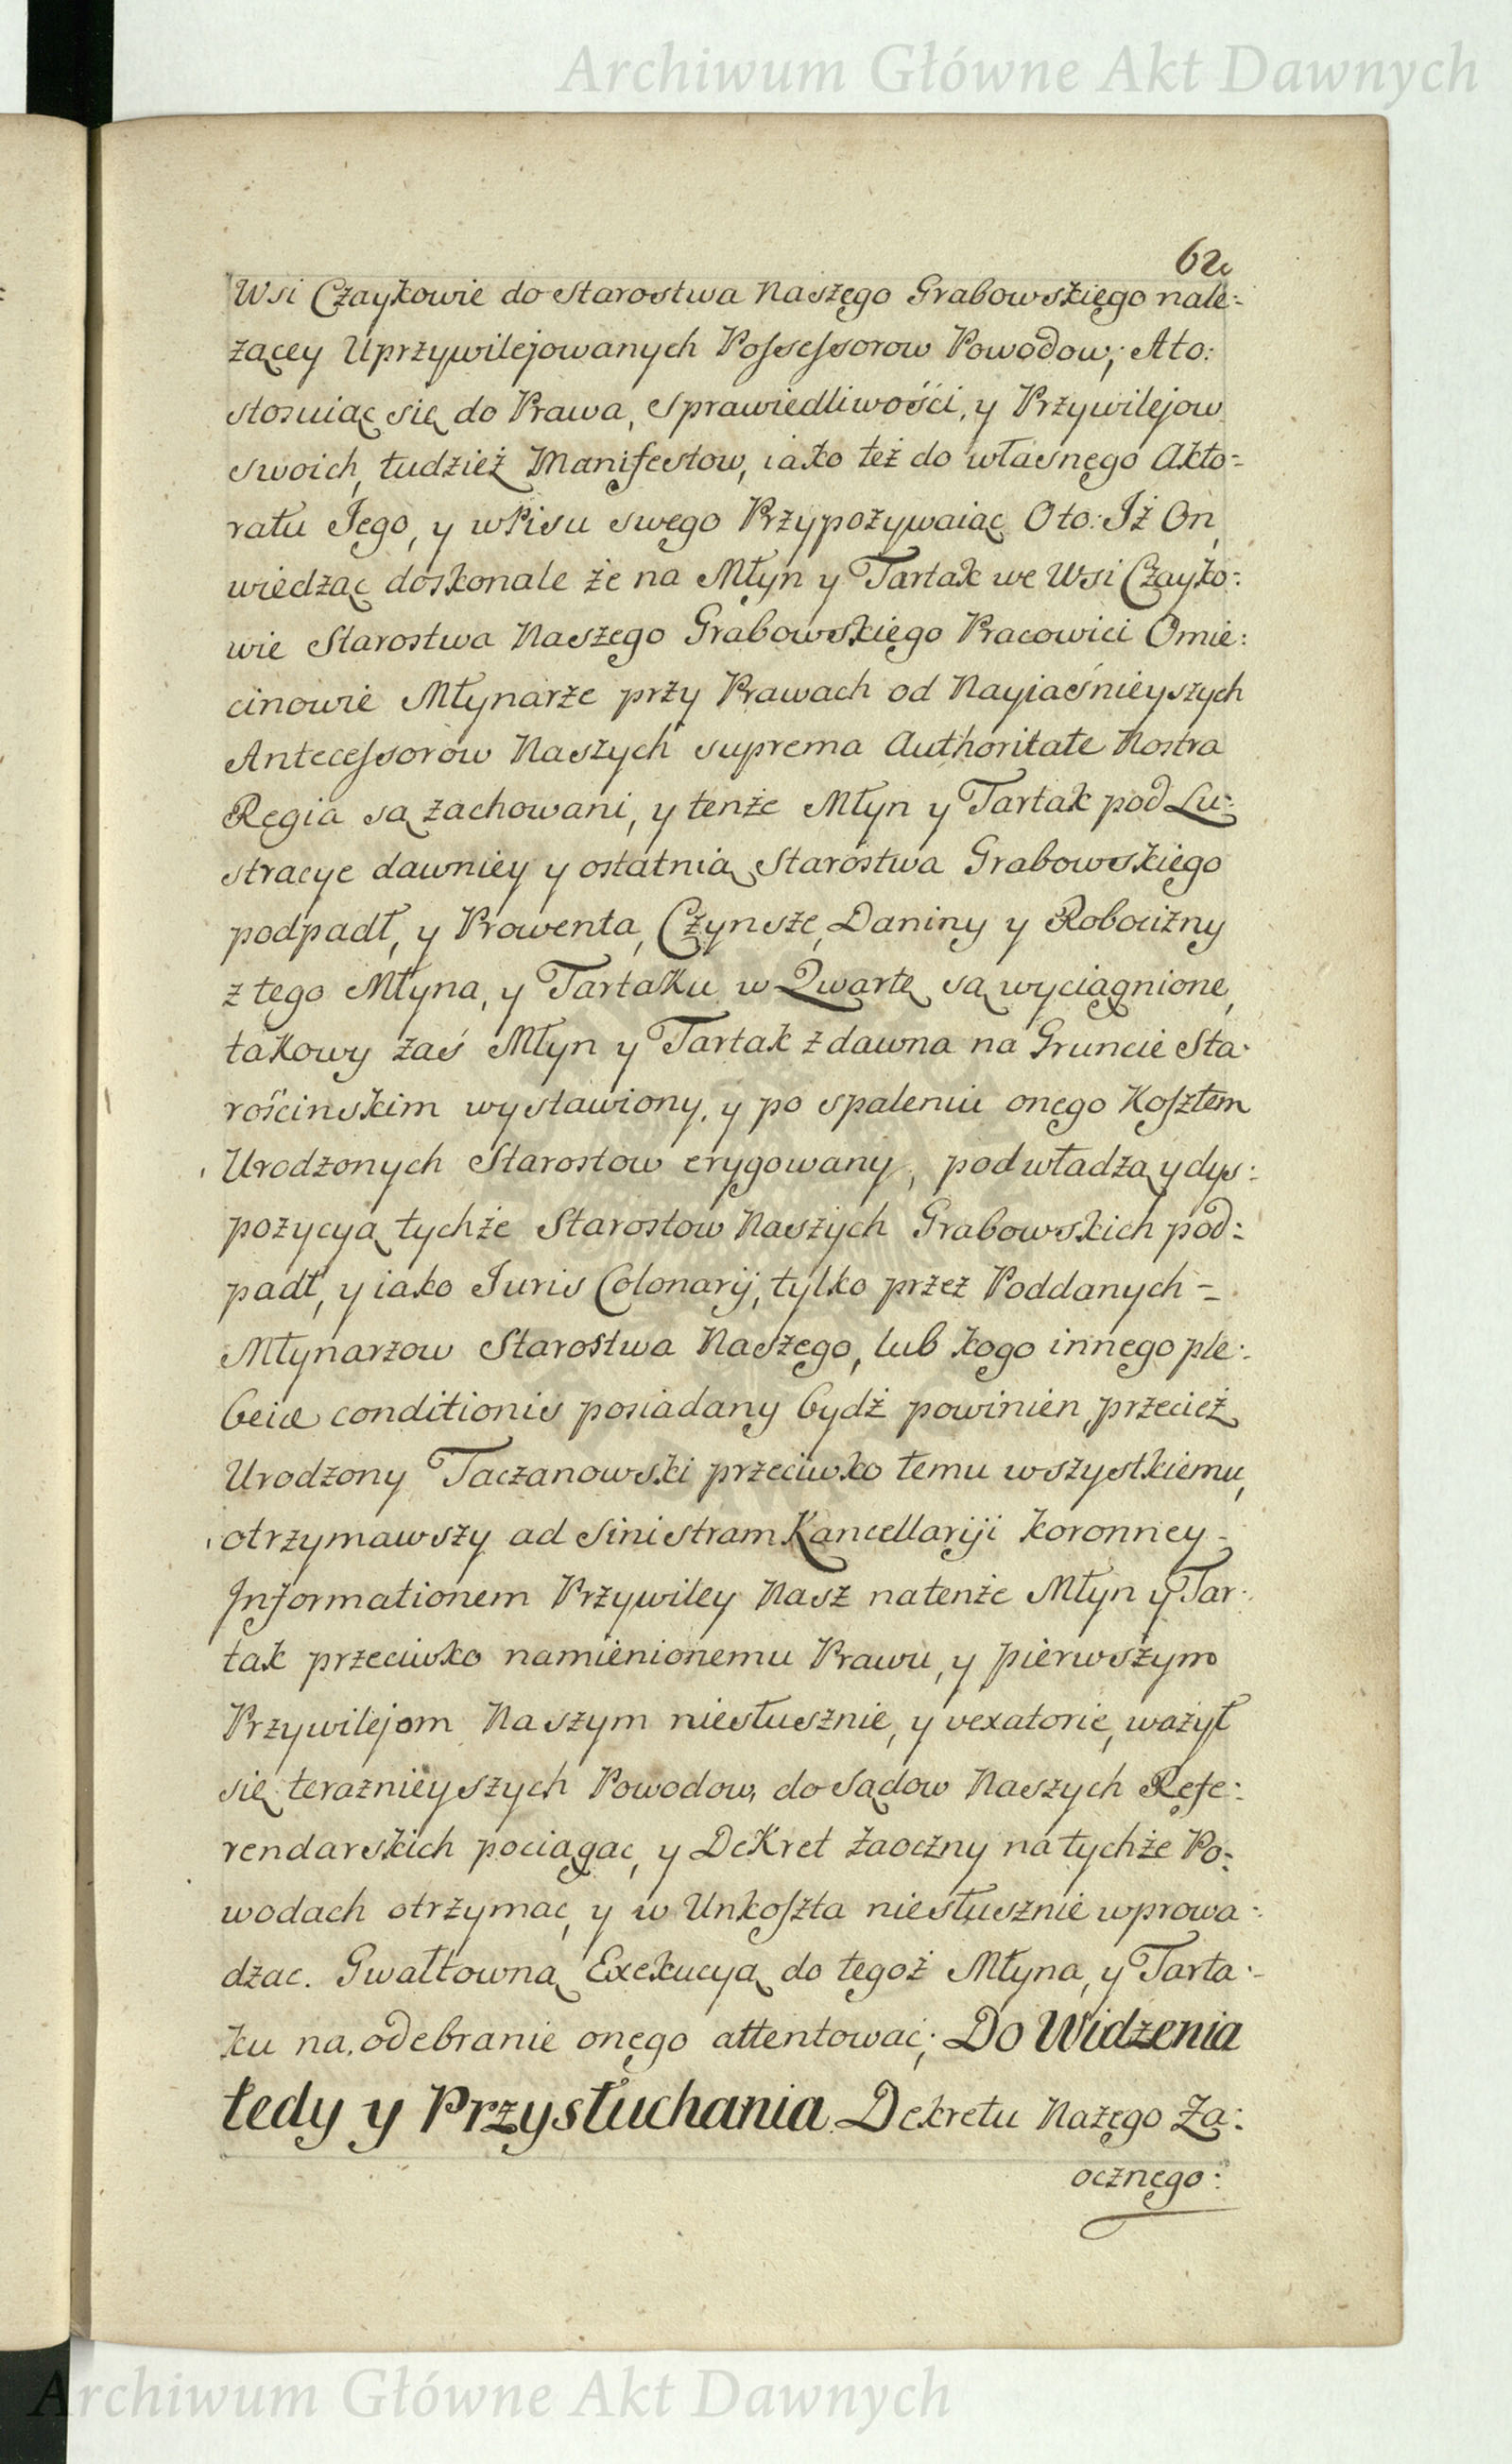 Archiwum Główne Akt Dawnych
62
Wsi Czaykowie do Starostwa Naszego Grabowskiego nale:
żącey Uprzywilejowanych Possessorow Powodow; A to:
stosuiąc się do Prawa, Sprawiedliwości, y Przywilejow
swoich, tudzież Manifestow, iako też do własnego Akto=
ratu Jego, y wPisu swego Przypozywaiąc O to: Iż On,
wiedząc doskonale że na Młyn y Tartak we Wsi Czayko:
wie Starostwa Naszego Grabowskiego Pracowici Omie:
cinowie Młynarze przy Prawach od Nayiaśnieyszych
Antecessorow Naszych suprema Authoritate Nostra
Regia są zachowani, y tenże Młyn y Tartak pod Lu:
stracye dawniey y ostatnią Starostwa Grabowskiego
podpadł, y Prowenta, Czynsze, Daniny y Robocizny
z tego Młyna, y Tartaku w Qwartę są wyciągnione,
takowy zaś Młyn y Tartak zdawna na Gruncie Sta:
rościnskim wystawiony, y po spaleniu onego Kosztem
Urodzonych Starostow erygowany, pod władzą y dys:
pozycyą tychże Starostow Naszych Grabowskich pod:
padł, y iako Juris Colonarij, tylko przez Poddanych =
Młynarzow Starostwa Naszego, lub kogo innego ple:
beiæ conditionis posiadany bydź powinien, przecież
Urodzony Taczanowski przeciwko temu wszystkiemu,
otrzymawszy ad Sinistram Kancellariji Koronney
Informationem Przywiley Nasz na tenże Młyn y Tar:
tak przeciwko namienionemu Prawu, y pierwszym
Przywilejom Naszym niesłusznie, y vexatorie, ważył
się teraznieyszych Powodow, do Sądow Naszych Refe:
rendarskich pociągac, y DeKret zaoczny na tychże Po:
wodach otrzymac, y w Unkoszta niesłusznie wprowa:
dzac. Gwałtowną Exekucyą do tegoż Młyna, y Tarta:
ku na odebranie onego attentować; Do Widzenia
tedy y Przysłuchania Dekretu Nazego Za:
ocznego:
Archiwum Główne Akt Dawnych